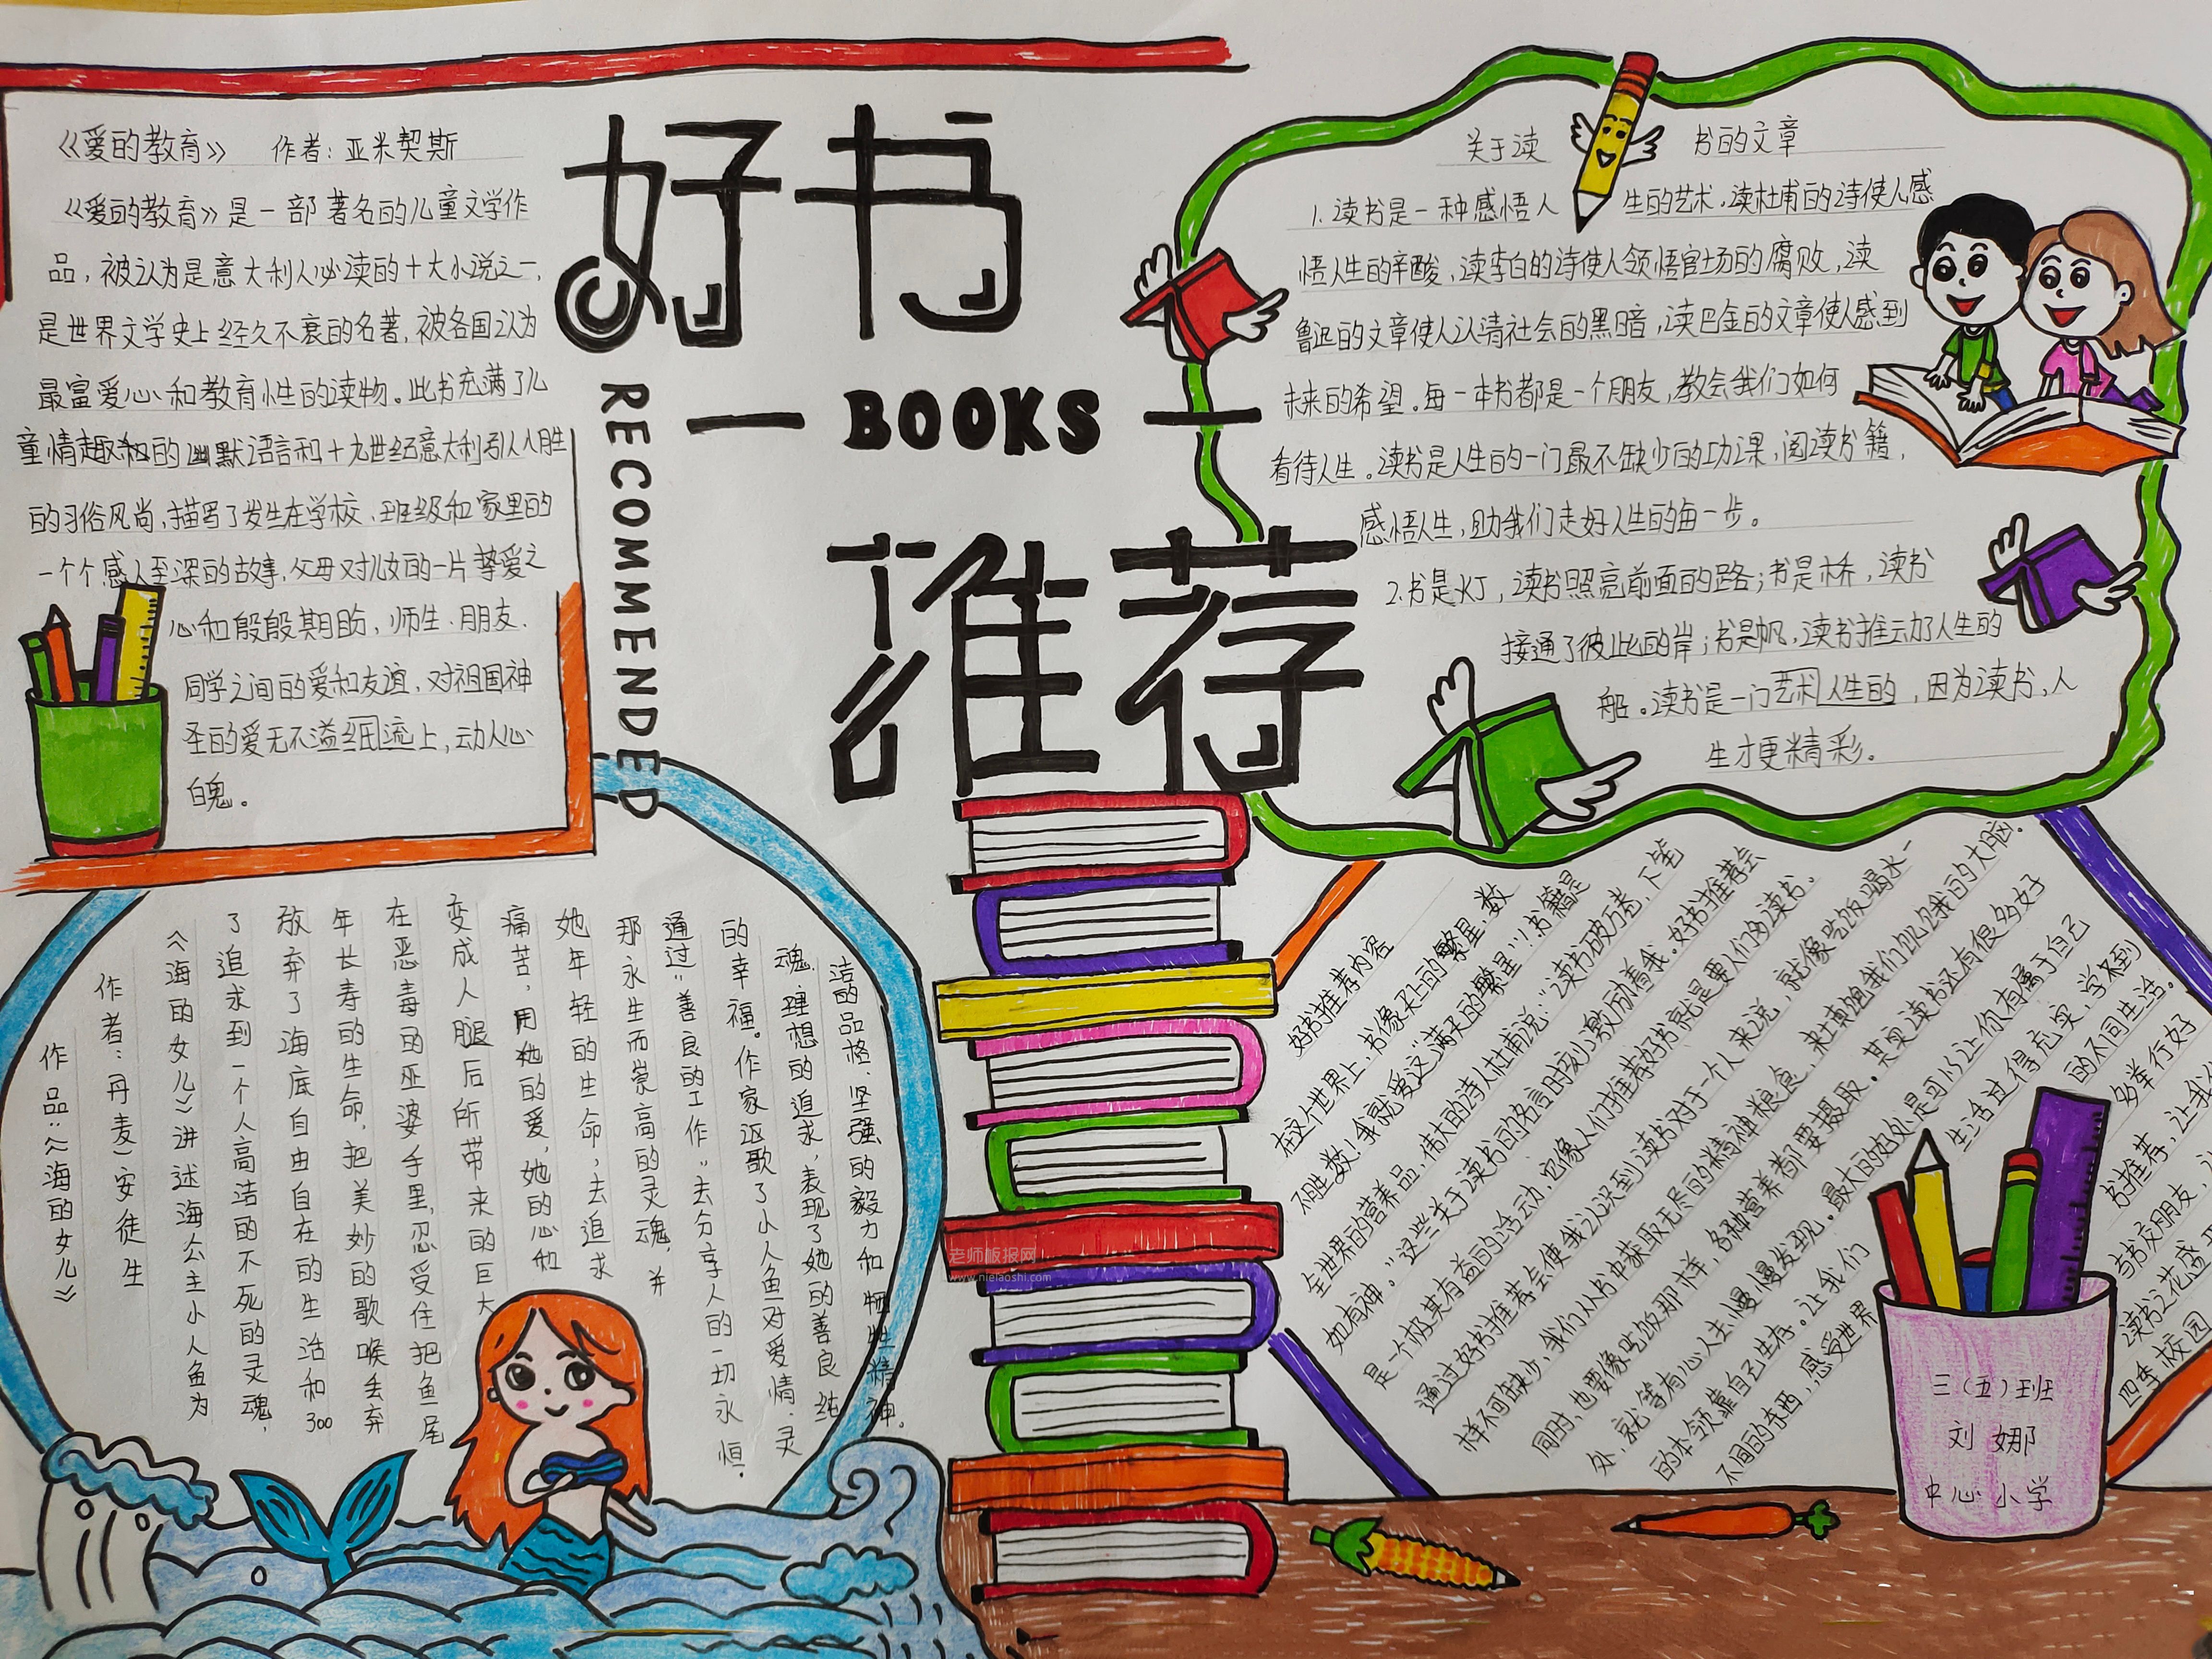 好书
BOOKS
RECOMMENDED
推荐
《爱的教育》 作者：亚米契斯
《爱的教育》是一部著名的儿童文学作
品，被认为是意大利人必读的十大小说之一，
是世界文学史上经久不衰的名著，被各国认为
最富爱心和教育性的读物。此书充满了儿
童情趣和的幽默语言和十九世纪意大利引人入胜
的习俗风尚，描写了发生在学校、班级和家里的
一个个感人至深的故事，父母对儿女的一片挚爱之
心和殷殷期盼，师生、朋友、
同学之间的爱和友谊，对祖国神
圣的爱无不溢细流上，动人心
白鬼。
关于读书的文章
1. 读书是一种感悟人生的艺术，读杜甫的诗使人感
悟人生的辛酸，读李白的诗使人领悟官场的腐败，读
鲁迅的文章使人认清社会的黑暗，读巴金的文章使人感到
未来的希望。每一本书都是一个朋友，教会我们如何
看待人生。读书是人生的一门最不缺少的功课，阅读书籍，
感悟人生，助我们走好人生的每一步。
2. 书是灯，读书照亮前面的路；书是桥，读书
接通了彼此的岸；书是帆，读书推动了人生的
船。读书是一门艺术人生的，因为读书，人
生才更精彩。
作品：《海的女儿》
作者：（丹麦）安徒生
《海的女儿》讲述海公主小人鱼为
了追求到一个人高洁的不死的灵魂，
放弃了海底自由自在的生活和300
年长寿的生命，把美妙的歌喉丢弃
在恶毒的巫婆手里，忍受住把鱼尾
变成人腿后所带来的巨大
痛苦，用她的爱，她的心和
她年轻的生命，去追求
那永生而崇高的灵魂，并
通过“善良的工作”去分享人的一切永恒，
的幸福。作家讴歌了小人鱼对爱情、灵
魂、理想的追求，表现了她的善良纯
洁的品格、坚强的毅力和牺牲精神。
好书推荐内容
在这个世界上，书像天上的繁星，数
不胜数！我就爱这“满天的繁星”！书籍是
全世界的营养品，伟大的诗人杜甫说：“读书破万卷，下笔
如有神。”这些关于读书的名言时刻激励着我。好书推荐会
是一个极其有益的活动，它像人们推荐好书就是要人们多读书。
通过好书推荐会使我认识到读书对于一个人来说，就像吃饭喝水一
样不可缺少，我们从书中获取无尽的精神粮食，来填饱我们饥饿的大脑。
同时，也要像吃饭那样，各种营养都要摄取。其实读书还有很多好
处，就等有心人去慢慢发现。最大的好处是可以让你有属于自己
的本领靠自己生存。让我们生活过得充实，学不到
不同的东西，感受世界的不同生活。
多举行好
书推荐，让我
与书交朋友，
读书之花盛
四季校园
三（五）班
刘娜
中心小学
老师板报网
www.nielaoshi.com